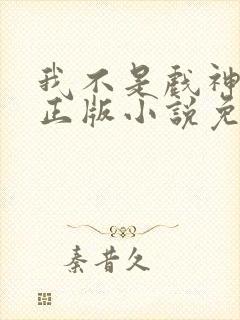 我不是戲神
正版小說免
秦昔久